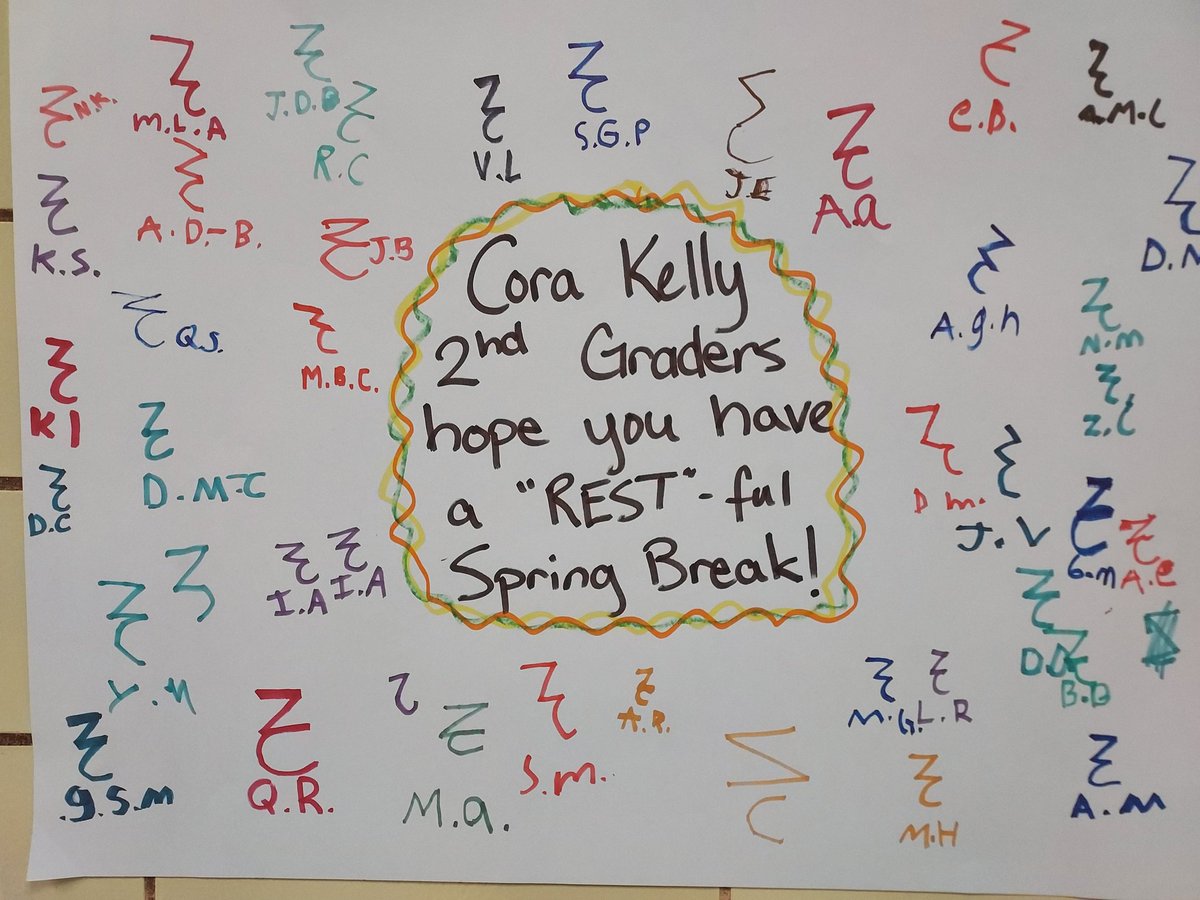 N.K.
M.L.A
J.D.B
R.C
V.L
S.G.P
J.E
A.a
C.B.
A.M.L
K.S.
A.D.-B.
J.B
D.M
Q.S.
M.B.C.
A.g.h
N.m
Cora Kelly
2nd Graders
hope you have
a "REST"-ful
Spring Break!
K I
D.M-C
D.C
Z.C
D m.
J.V
G.m
A.e
I.A
I.A
Y.M
D.D
B.D
g.S.m
Q.R.
M.a.
S.m.
A.R.
M.G.
L.R
M.H
A.M